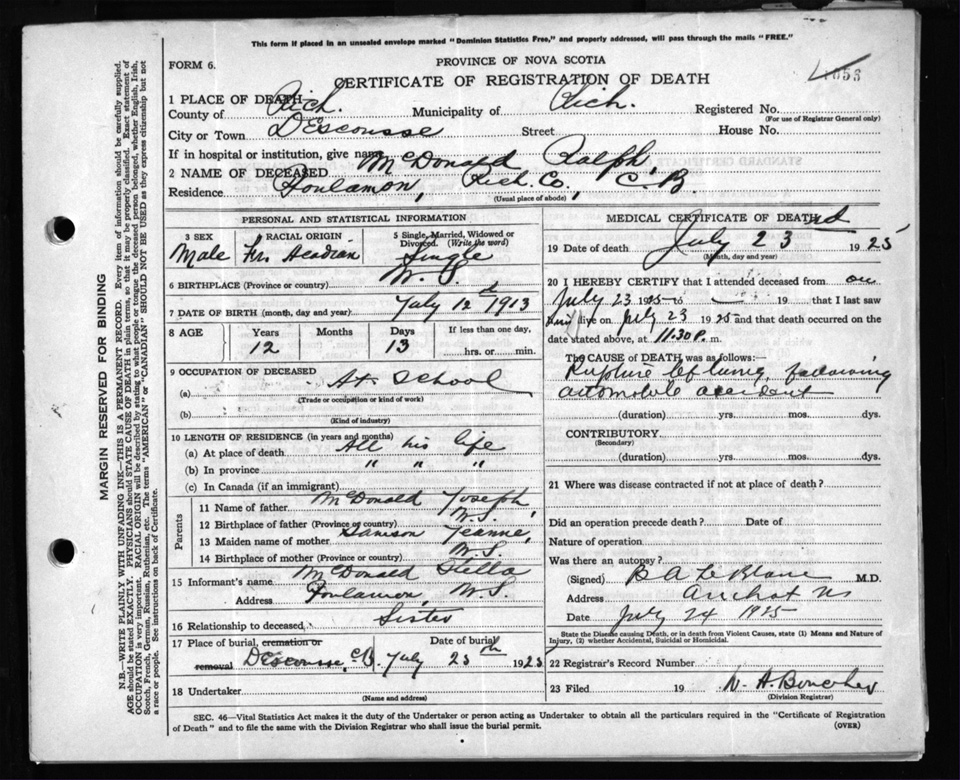 This form if placed in an unsealed envelope marked "Dominion Statistics Free," and properly addressed, will pass through the mails "FREE."
FORM 6.
PROVINCE OF NOVA SCOTIA
CERTIFICATE OF REGISTRATION OF DEATH
1 PLACE OF DEATH
County of Rich. Municipality of Rich. Registered No.
(For use of Registrar General only)
City or Town Descousse Street House No.
If in hospital or institution, give name
2 NAME OF DECEASED McDonald Ralph,
Residence Poulamon, Rich. Co., C.B.
(Usual place of abode)
PERSONAL AND STATISTICAL INFORMATION
3 SEX RACIAL ORIGIN 5 Single, Married, Widowed or Divorced. (Write the word)
Male Fr. Acadian Single
6 BIRTHPLACE (Province or country) N.S.
7 DATE OF BIRTH (month, day and year) July 12 1913
8 AGE Years Months Days If less than one day,
12 13 hrs. or min.
9 OCCUPATION OF DECEASED
(a) At School
(Trade or occupation or kind of work)
(b)
(Kind of industry)
10 LENGTH OF RESIDENCE (in years and months)
(a) At place of death All his life
(b) In province " " "
(c) In Canada (if an immigrant)
Parents
11 Name of father McDonald Joseph,
12 Birthplace of father (Province or country) N.S.
13 Maiden name of mother Samson Jeanne,
14 Birthplace of mother (Province or country) N.S.
15 Informant's name McDonald Stella
Address Poulamon, N.S.
16 Relationship to deceased Sister
17 Place of burial, cremation or removal Date of burial
Descousse C.B. July 25th 1925
18 Undertaker
(Name and address)
MEDICAL CERTIFICATE OF DEATH
19 Date of death July 23rd 1925
(Month, day and year)
20 I HEREBY CERTIFY that I attended deceased from on
July 23 1925 to — 19 that I last saw
him alive on July 23 1925 and that death occurred on the
date stated above, at 11:30 P. m.
The CAUSE of DEATH was as follows:
Rupture left lung, following
automobile accident
(duration) yrs. mos. dys.
CONTRIBUTORY
(Secondary)
(duration) yrs. mos. dys.
21 Where was disease contracted if not at place of death?
Did an operation precede death? Date of
Nature of operation
Was there an autopsy?
(Signed) B A LeBlanc M.D.
Address Arichat NS
Date July 24 1925
State the Disease causing Death, or in death from Violent Causes, state (1) Means and Nature of Injury, (2) whether Accidental, Suicidal or Homicidal.
22 Registrar's Record Number
23 Filed 19 N. A. Boucher
(Division Registrar)
SEC. 46—Vital Statistics Act makes it the duty of the Undertaker or person acting as Undertaker to obtain all the particulars required in the "Certificate of Registration
of Death" and to file the same with the Division Registrar who shall issue the burial permit.
(OVER)
MARGIN RESERVED FOR BINDING
N.B.—WRITE PLAINLY WITH UNFADING INK—THIS IS A PERMANENT RECORD. Every item of information should be carefully supplied.
AGE should be stated EXACTLY. PHYSICIANS should STATE CAUSE OF DEATH in plain terms, so that it may be properly classified. Exact statement of
OCCUPATION is very important. RACIAL ORIGIN will be described by stating to what people or tongue the deceased person belonged, whether English, Irish,
Scotch, French, German, Russian, Ruthenian, etc. The terms "AMERICAN" or "CANADIAN" SHOULD NOT BE USED as they express citizenship but not
a race or people. See instructions on back of Certificate.